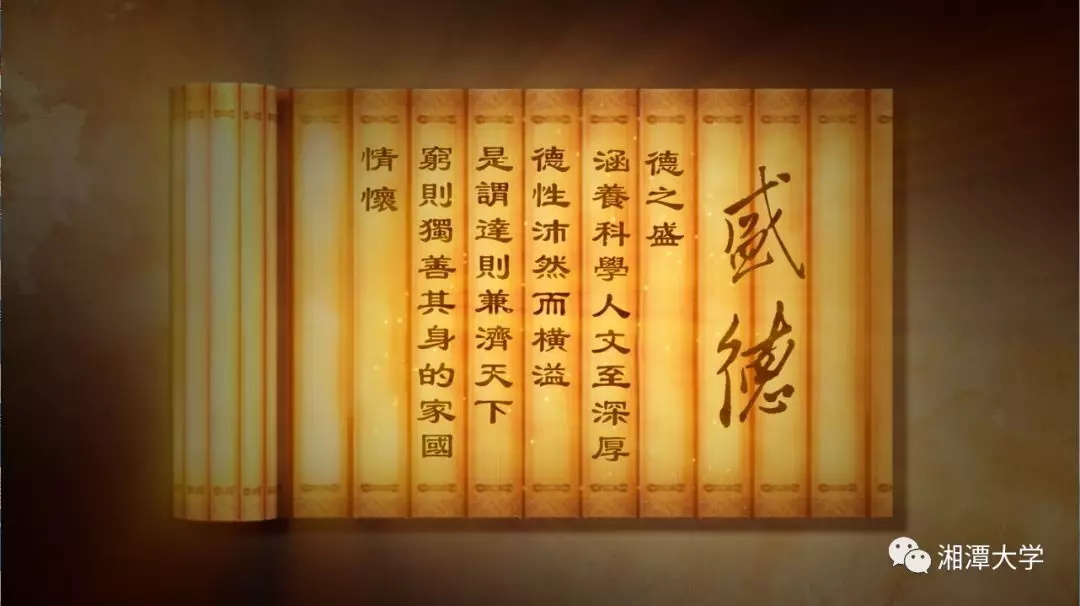 盛德
德之盛
涵養科學人文至深厚
德性沛然而橫溢
是謂達則兼濟天下
窮則獨善其身的家國
情懷
湘潭大学